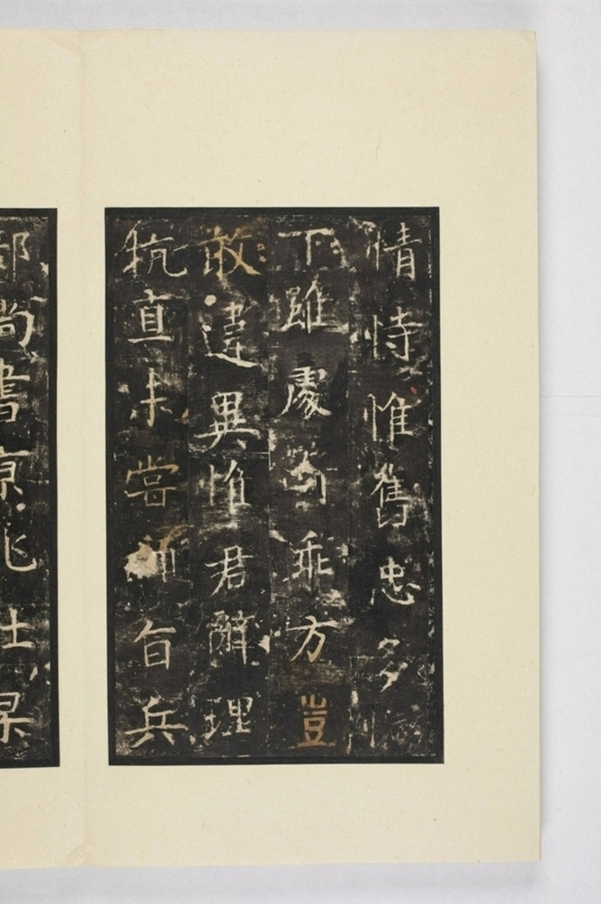 情恃惟舊忠多
下雖處尚乖方豈
敢違異惟君辭理
抗直未嘗旨兵
部尚書京兆杜杲